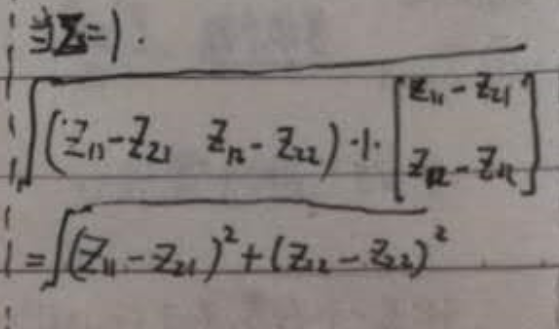 当Σ=1.
√(Z₁₁-Z₂₁ Z₁₂-Z₂₂)·1·[Z₁₁-Z₂₁
Z₁₂-Z₂₂]
=√(Z₁₁-Z₂₁)²+(Z₁₂-Z₂₂)²